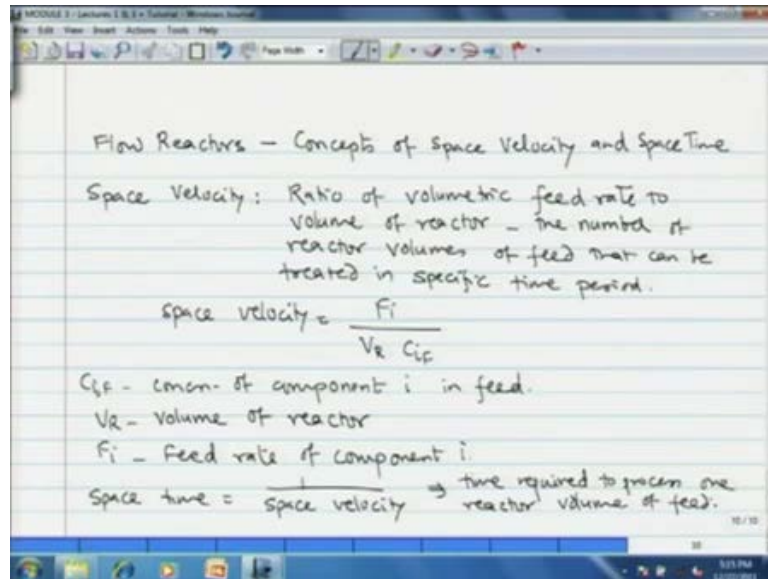 MODULE 3 - Lectures 1 & 3 + Tutorial - Windows Journal
File Edit View Insert Actions Tools Help
Page Width
Flow Reactors - Concepts of Space Velocity and Space Time
Space Velocity: Ratio of volumetric feed rate to
volume of reactor - the number of
reactor volumes of feed that can be
treated in specific time period.
Space velocity = Fi
VR CiF
CiF - concn. of component i in feed.
VR - Volume of reactor
Fi - Feed rate of component i.
Space time = 1 ⇒ time required to process one
Space velocity reactor volume of feed.
10/10
5:15 PM